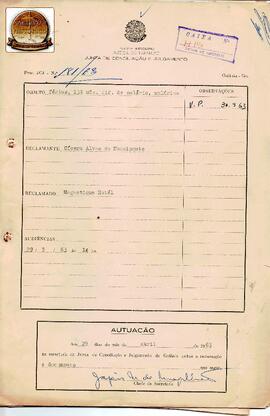 CAIXA
JUSTIÇA DO TRABALHO
JUNTA DE CONCILIAÇÃO E JULGAMENTO
Proc. JCJ - N.º 181/63
Goiânia - Go.
OBJETO Férias, 13º mês, dif. de salário, salários
OBSERVAÇÕES
V.P. 30.5.63
RECLAMANTE Cícero Alves do Nascimento
RECLAMADO Magestique Hotél
AUDIÊNCIAS
29 / 5 / 63 às 14
AUTUAÇÃO
Aos 29 dias do mês de abril de 1963
na secretaria da Junta de Conciliação e Julgamento de Goiânia autuo a reclamação
e documentos
Chefe da Secretaria